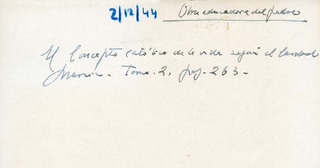 2/12/44
Obra educadora del padre
El Concepto católico de la vida según el Cardenal
Tomo. 2, pag. 263.-